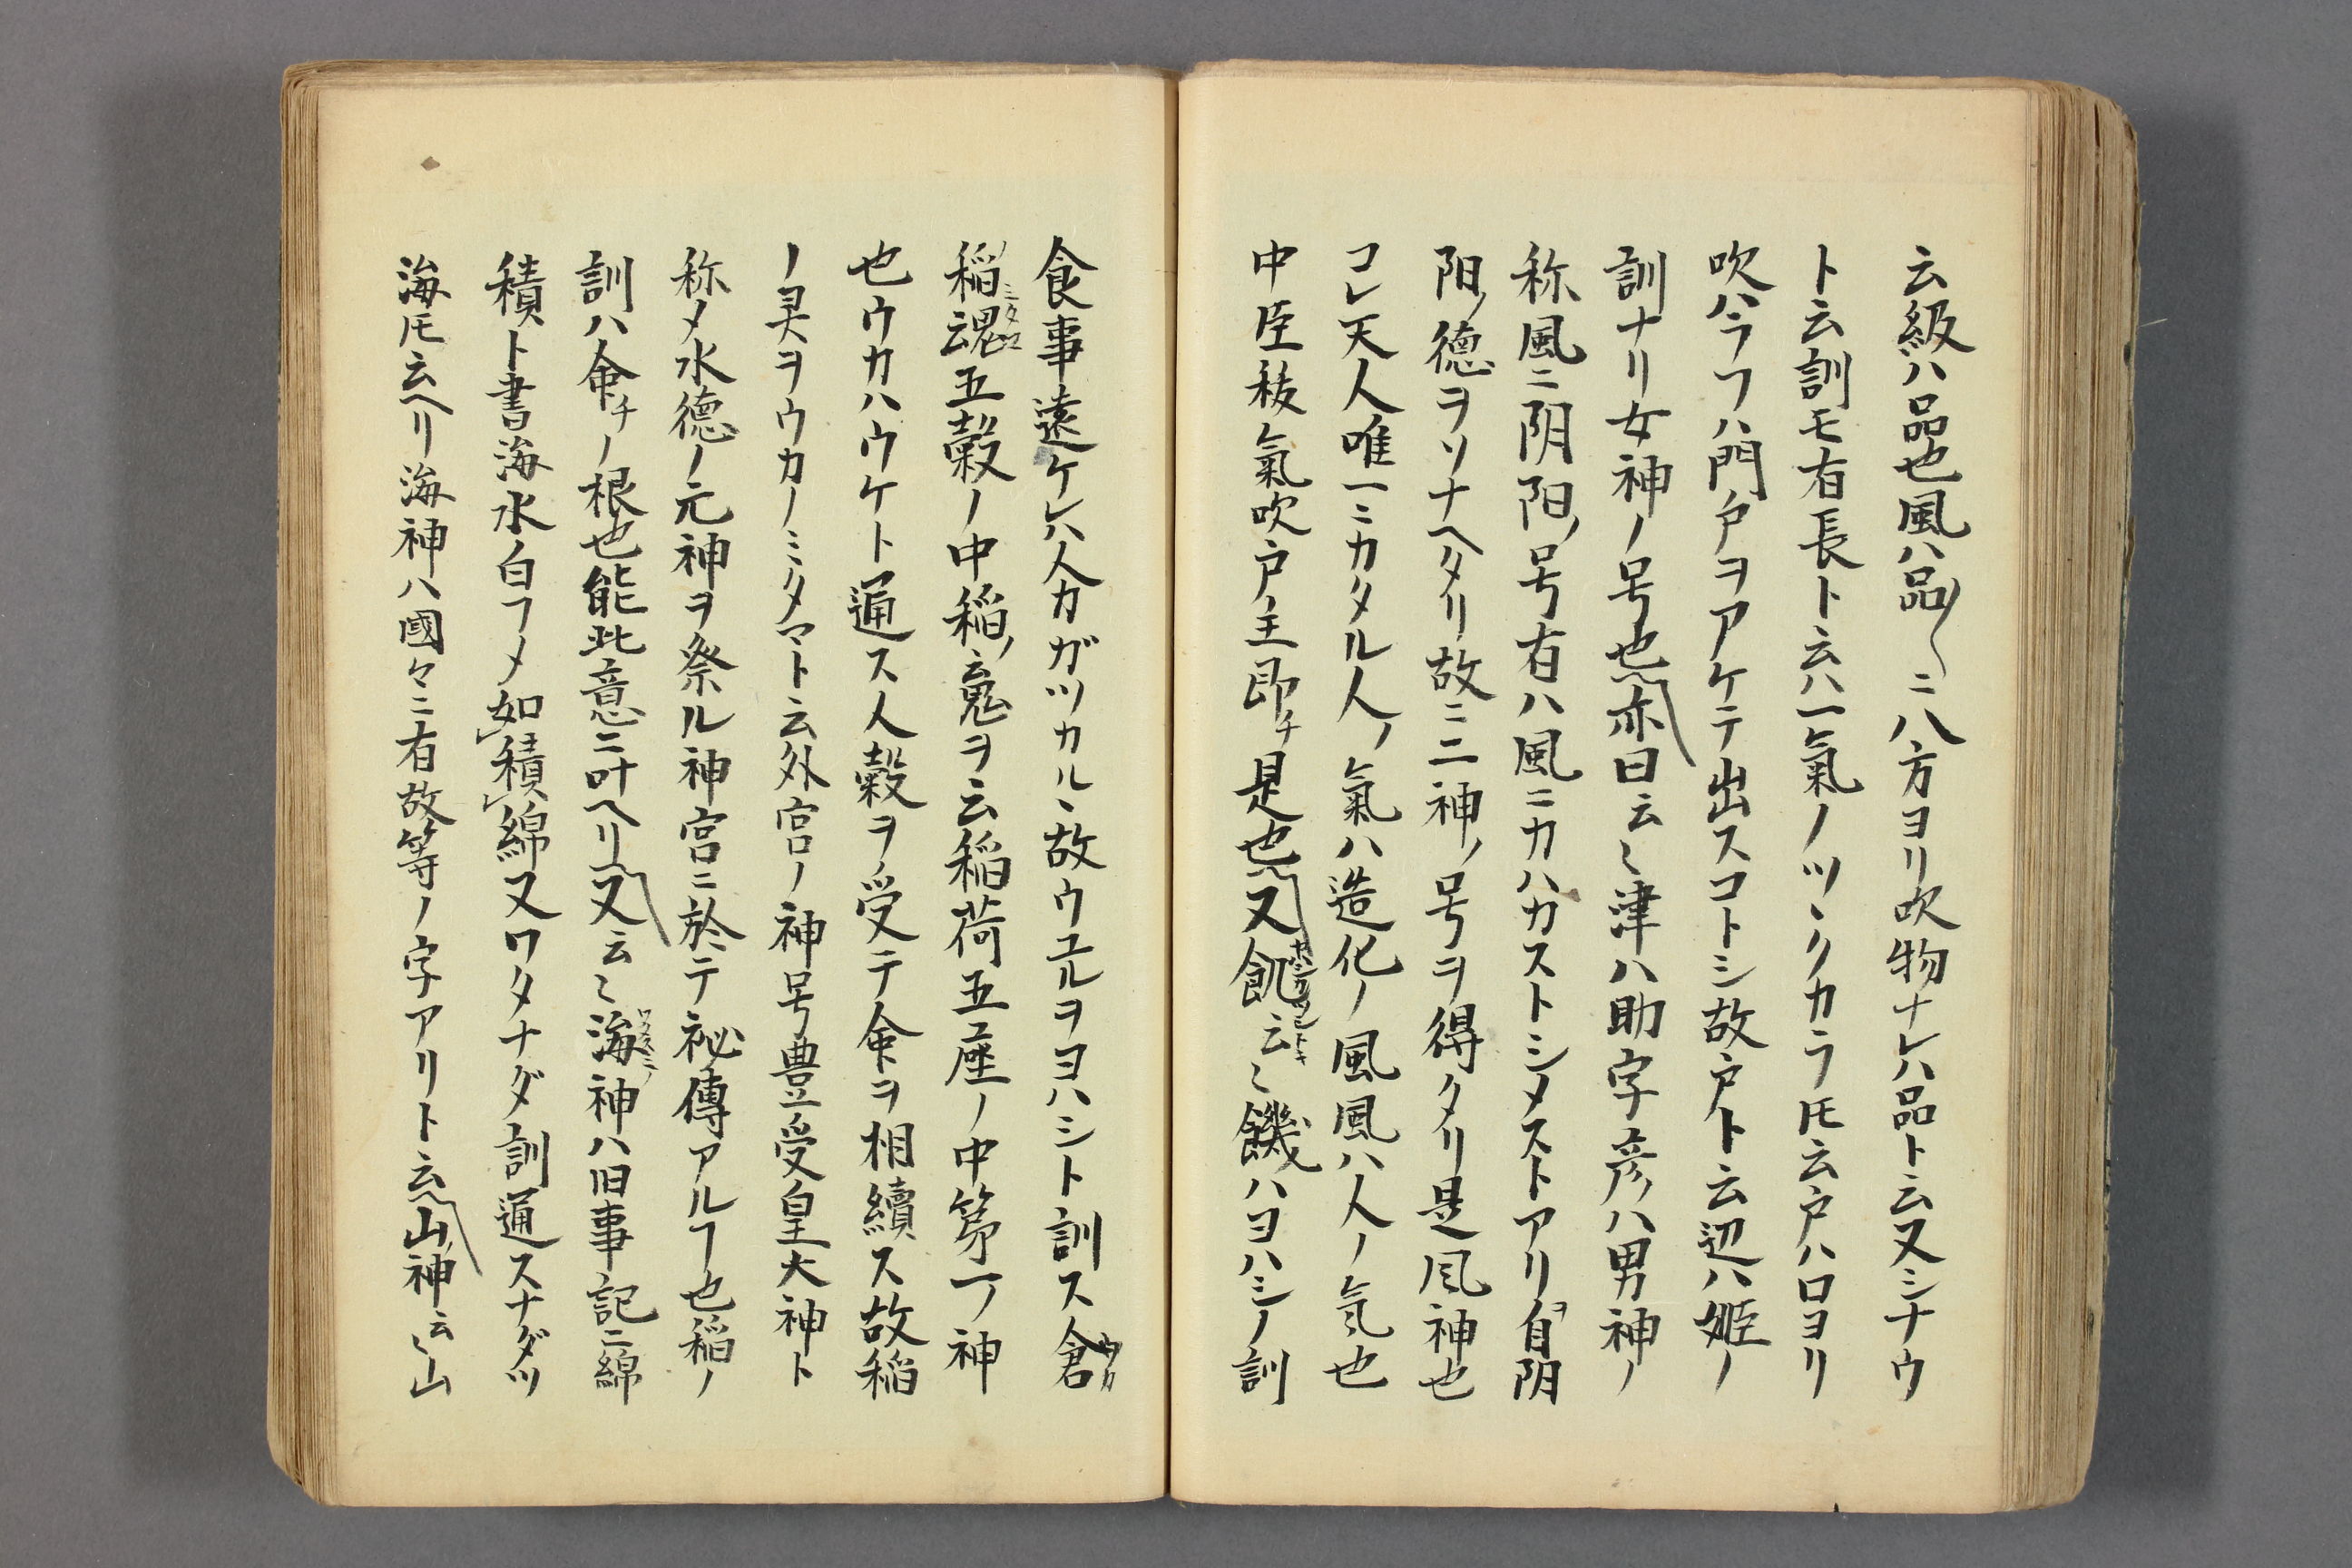 云級ハ品也風ハ品〳〵ニ八方ヨリ吹物ナレハ品ト云又シナウ
ト云訓モ有長ト云ハ一氣ノツヽクカラ𪜈云戸ハロヨリ
吹ハラフハ門戸ヲアケテ出スコトシ故戸ト云辺ハ姫ノ
訓ナリ女神ノ号也亦曰云〻津ハ助字彦ハ男神ノ
称風ニ阴阳ノ号有ハ風ニカハカストシメストアリ自ヲ阴
阳ノ徳ヲソナヘタリ故ニ二神ノ号ヲ得タリ是風神也
コレ天人唯一ニカタル人ノ氣ハ造化ノ風風ハ人ノ気也
中臣秡氣吹戸主即チ是也又飢云〻饑ハヨハシノ訓
食事遠ケレハ人カガツカルヽ故ウユルヲヨハシト訓ス倉ウカ
稲ノ魂ミタマ云五穀ノ中稲ノ䰟ヲ云稲荷五座ノ中第一ノ神
也ウカハウケト通ス人穀ヲ受テ命ヲ相續ス故稲
ノ灵ヲウカノミタマト云外宮ノ神号豊受皇大神ト
称メ水德ノ元神ヲ祭ル神宮ニ於テ祕傳アルヿ也稲ノ
訓ハ命チノ根也能此意ニ叶ヘリ又云〻海ワタツミノ神ハ旧事記ニ綿
積ト書海水ノ白フメ如レ積レ綿又ワタナダ訓通スナダツ
海𪜈云ヘリ海神ハ國々ニ有故等ノ字アリト云山ノ神云〻山